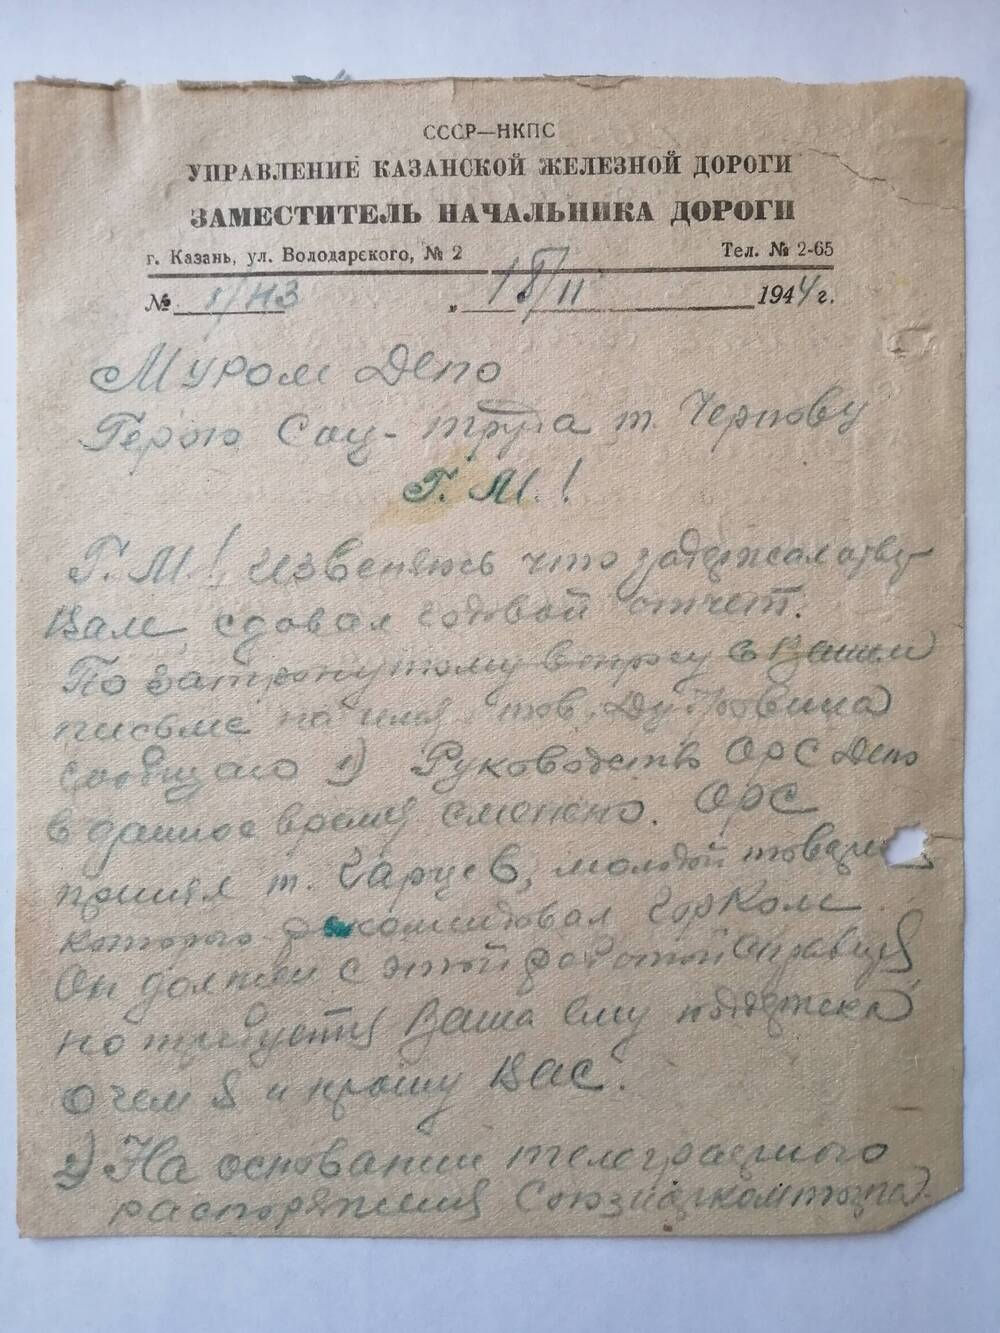 СССР—НКПС
УПРАВЛЕНИЕ КАЗАНСКОЙ ЖЕЛЕЗНОЙ ДОРОГИ
ЗАМЕСТИТЕЛЬ НАЧАЛЬНИКА ДОРОГИ
г. Казань, ул. Володарского, № 2 Тел. № 2-65
№ 1/НЗ „ 15/II 1944 г.
Муром Депо
Герою Соц-труда т. Чернову
Г. М.!
Г. М.! Извеняюсь что задержал
Вам, сдовал годовой отчет.
По затронутому вопросу в Вашем
письме на имя тов. Дубровина
сообщаю 1) Руководство ОРС Депо
в данное время сменено. ОРС
принял т. молодой
которого рекомендовал ГорКом
Он должен с этой работой справится
но требуется Ваша ему поддержка
о чем я и прошу Вас.
2) На основании телеграфного
распоряжения